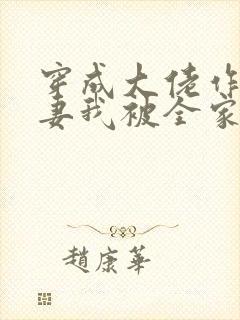 穿成大佬作
妻我被全家
趙康華